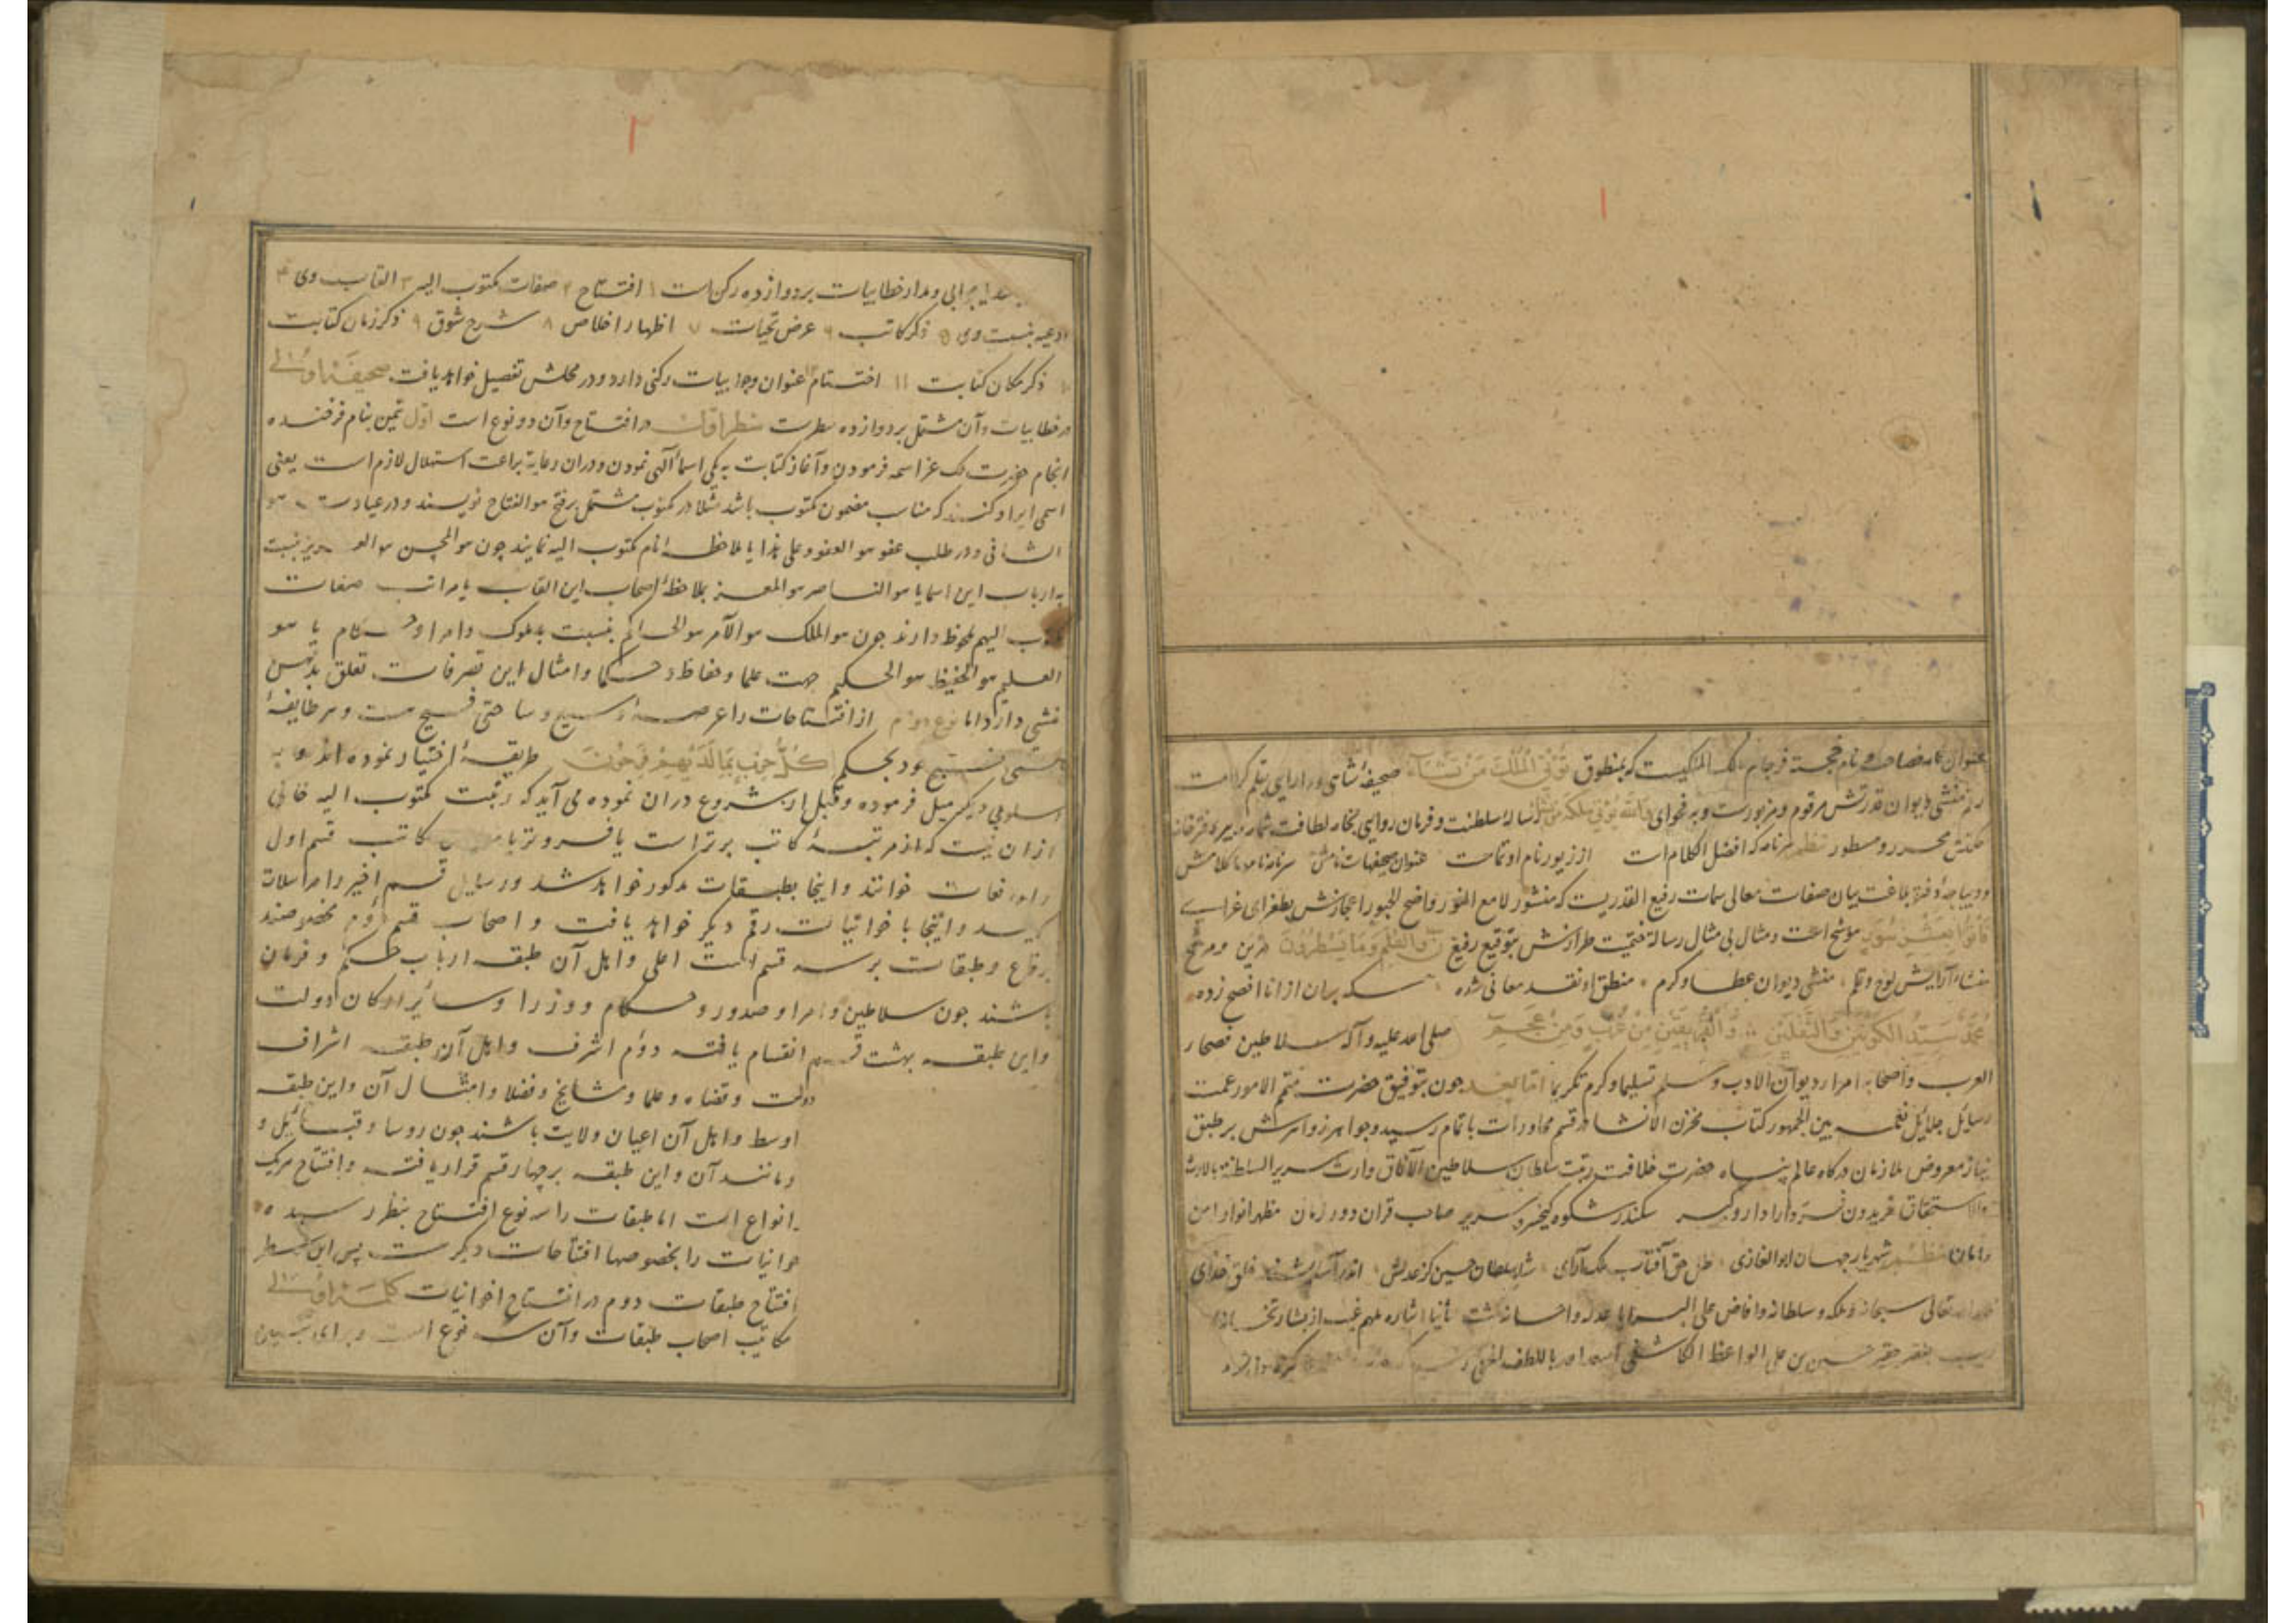 ۱
عنوان نامه نام خجسته فرجام مالک الملکیست که بمنطوق تؤتی الملک من تشاء صحیفه
منشی دیوان قدرتش مرقوم و مزبورست و به فحوای والله یؤتی ملکه من یشاء رساله سلطنت و فرمان روایی
محرر و مسطور نظم سرنامه که افضل الکلام است از زیور نام او تمامست عنوان صحیفهات نامش سرنامه نامها کلامش
و دیباجه دفتر بلاغت بیان صفات معالی سمات رفیع القدریست که منشور لامع النور واضح الحبور اعجازش بطغرای غرای
فأتوا بعشر سور موشح است و مثال بی مثال رسالة ختمیت طرازش بتوقیع رفیع ن والقلم وما یسطرون مزین و مرشح
آرایش لوح و قلم منشی دیوان عطا و کرم منطق او نقد معانی شده سکه بیان از انا افصح زده
محمد سید الکونین والثقلین والفریقین من عرب ومن عجم صلی الله علیه وآله سلاطین فصحاء
العرب واصحابه امراء دیوان الادب وسلم تسلیما وکرم تکریما اما بعد چون بتوفیق حضرت متمم الامور عمت
رسائل جلائل نعمه بین الجمهور کتاب مخزن الانشا در قسم محاورات باتمام رسید و جواهر زواهرش بر طبق
نیاز معروض ملازمان درکاه عالم پناه حضرت خلافت رتبت سلطان سلاطین الآفاق وارث سریر السلطنة بالارث
والاستحقاق فریدون فر دارا دار و کیر سکندر شکوه کیخسرو سریر صاحب قران دور زمان مظهر انوار امن
وامان نظم شهریار جهان ابو الغازی ظل حق آفتاب ملک آرای شاه سلطان حسین کز عدلش اندر آسایشند خلق خدای
تعالی سبحانه ملکه وسلطانه وافاض علی البرایا عدله واحسانه کشت ثانیا اشاره ملهم غیب از بشارتخانه
فقیر حقیر حسین بن علی الواعظ الکاشفی ایده الله باللطف الخفی
۲
جوابی و مدار خطابیات بر دوازده رکن است ۱ افتتاح ۲ صفات مکتوب الیه ۳ القاب وی ۴
ادعیه بنسبت وی ۵ ذکر کاتب ۶ عرض تحیات ۷ اظهار اخلاص ۸ شرح شوق ۹ ذکر زمان کتابت
۱۰ ذکر مکان کتابت ۱۱ اختتام ۱۲ عنوان وجوابیات رکنی دارد و در محلش تفصیل خواهد یافت صحیفه اولی
در خطابیات و آن مشتمل بر دوازده سطرست سطر اول در افتتاح و آن دو نوع است اول تیمن بنام فرخنده
انجام حضرت ملک عز اسمه فرمودن و آغاز کتابت به یکی اسماء الهی نمودن و دران رعایة براعت استهلال لازم است یعنی
اسمی ایراد کنند که مناسب مضمون مکتوب باشد مثلا در مکتوب مشتمل بر فتح هو الفتاح نویسند و در عیادت هو
الشافی و در طلب عفو هو العفو و علی هذا یا ملاحظه نام مکتوب الیه نمایند چون هو المحسن هو العزیز بنسبت
به ارباب این اسما یا هو الناصر هو المعز بملاحظه اصحاب این القاب یا مراتب صفات
مکتوب الیهم ملحوظ دارند چون هو الملک هو الآمر هو الحاکم بنسبت به ملوک و امرا و حکام یا هو
العلیم هو الحفیظ هو الحکیم جهت علما و حفاظ و حکما و امثال این تصرفات تعلق بذهن
منشی دارد اما نوع دوم از افتتاحات را عرصه وسیع و ساحتی فسیح هست و هر طایفه
کل حزب بما لدیهم فرحون طریقه اختیار نموده اند و به
اسلوبی دیکر میل فرموده و قبل از شروع دران نموده می آید که رتبت مکتوب الیه خالی
ازان نیست که از مرتبه کاتب برتر است یا فروتر یا کاتب قسم اول
را مرافعات خوانند و اینجا بطبقات مذکور خواهد شد و رسایل قسم اخیر را مراسلات
کویند و اینجا باخوانیات رقم ذکر خواهد یافت و اصحاب قسم دوم مخصوصند
برقاع و طبقات بر سه قسم است اعلی و اهل آن طبقه ارباب حکم و فرمان
باشند چون سلاطین و امرا و صدور و حکام و وزرا و سائر ارکان دولت
واین طبقه بهشت قسم انقسام یافته دوم اشرف و اهل آن طبقه اشراف
و قضاه و علما و مشایخ و فضلا و امثال آن و این طبقه
اوسط و اهل آن اعیان ولایت باشند چون روسا و قبائل و
و مانند آن و این طبقه بر چهار رقم قرار یافته و افتتاح هریک
انواع است اما طبقات را سه نوع افتتاح بنظر رسیده
اخوانیات را بخصوصها افتتاحات دیکرست پس این سطر
افتتاح طبقات دوم در افتتاح اخوانیات کلمه اولی
مکاتیب اصحاب طبقات و آن سه نوع است و برای